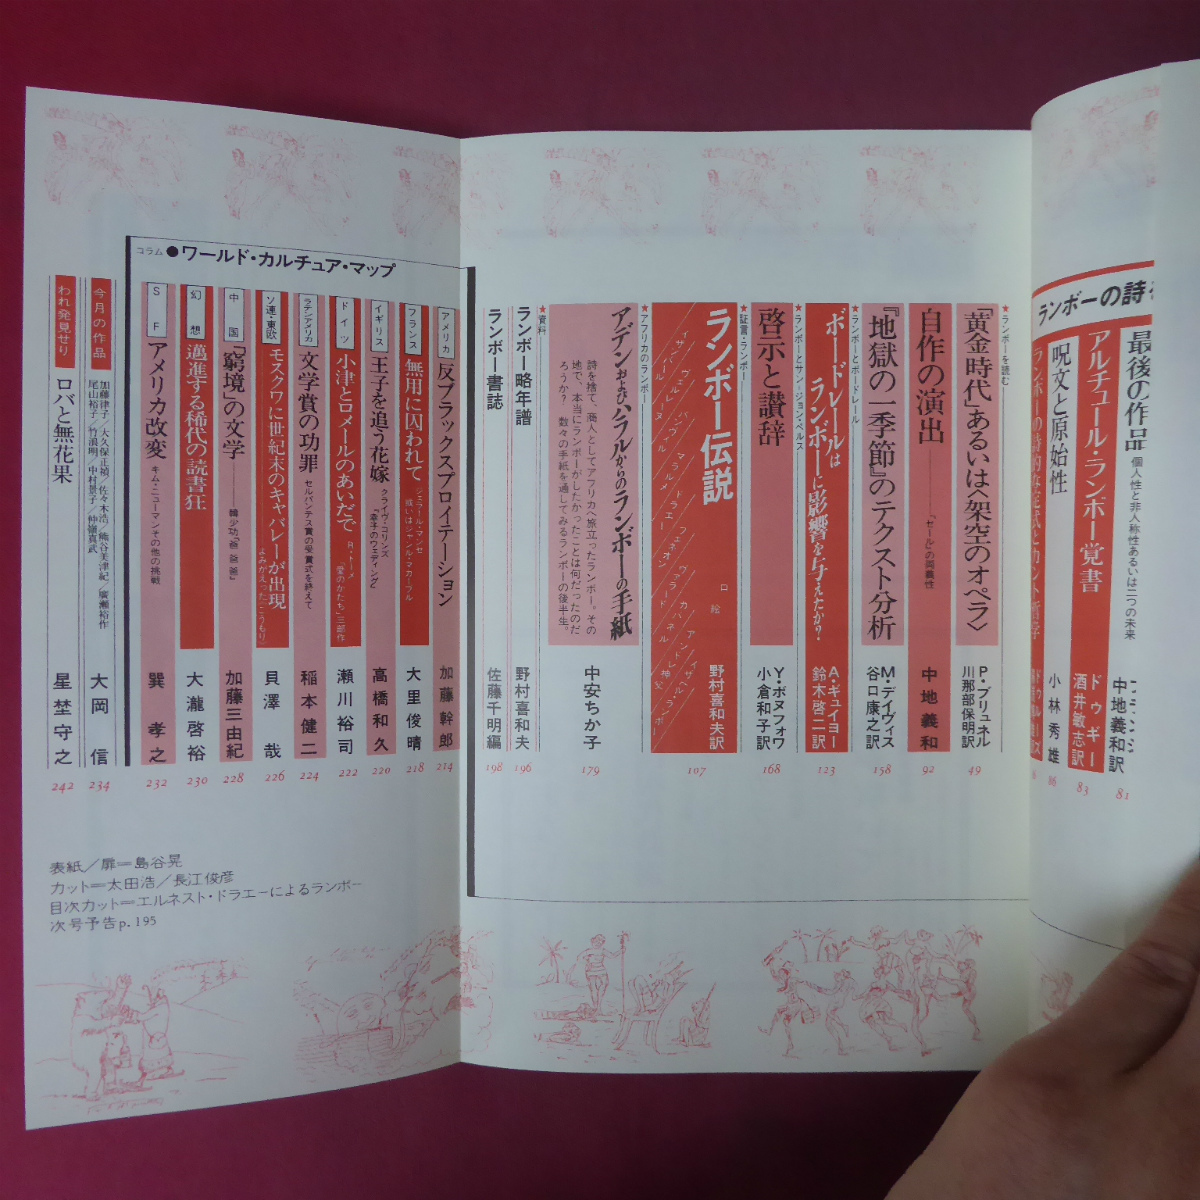 ランボーの詩
最後の作品
個人性と非人称性あるいは二つの未来
中地義和訳
81
アルチュール・ランボー覚書
ドゥギー
酒井敏志訳
83
呪文と原始性
小林秀雄
86
★ランボーを読む
「黄金時代」あるいは〈架空のオペラ〉
P・ブリュネル
川那部保明訳
49
自作の演出
「セール」の両義性
中地義和
92
『地獄の一季節』のテクスト分析
M・デイヴィス
谷口康之訳
158
★ランボーとボードレール
ボードレールは
ランボーに影響を与えたか?
A・ギュイヨー
鈴木啓二訳
123
★ランボーとサン=ジョン・ペルス
啓示と讃辞
Y・ボヌフォワ
小倉和子訳
168
★証言・ランボー
ランボー伝説
口絵
イザンバール/ヴェルレーヌ/バンヴィル/マラルメ/ドラエー/フェネオン/ヴァラード/カバネル/アンドレ神父/イザベル・ランボー
野村喜和夫訳
107
★アフリカのランボー
アデンおよびハラルからのランボーの手紙
詩を捨て、商人としてアフリカへ旅立ったランボー。その
地で、本当にランボーがしたかったことは何だったのだ
ろうか? 数々の手紙を通してみるランボーの後半生。
中安ちか子
179
★資料
ランボー略年譜
野村喜和夫
196
ランボー書誌
佐藤千明編
198
コラム●ワールド・カルチュア・マップ
アメリカ
反ブラックスプロイテーション
加藤幹郎
214
フランス
無用に囚われて
ジェラール・マンゼ
或いはジャンル・マカーブル
大里俊晴
218
イギリス
王子を追う花嫁
クライヴ・コリンズ
『幸子のウェディング』
高橋和久
220
ドイツ
小津とロメールのあいだで
R・トーメ
『愛のかたち』三部作
瀬川裕司
222
ラテンアメリカ
文学賞の功罪
セルバンテス賞の受賞式を終えて
稲本健二
224
ソ連・東欧
モスクワに世紀末のキャバレーが出現
よみがえった「こうもり」
貝澤哉
226
中国
「窮境」の文学
韓少功『爸爸爸』
加藤三由紀
228
幻想
邁進する稀代の読書狂
大瀧啓裕
230
SF
アメリカ改変
キム・ニューマンその他の挑戦
巽孝之
232
今月の作品
加藤律子/大久保正禎/佐々木浩/熊谷美津紀/廣瀬裕作
尾山裕子/竹浪明/中村景子/仲嶺真武
大岡信
234
われ発見せり
ロバと無花果
星埜守之
242
表紙/扉=島谷晃
カット=太田浩/長江俊彦
目次カット=エルネスト・ドラエーによるランボー
次号予告p.195